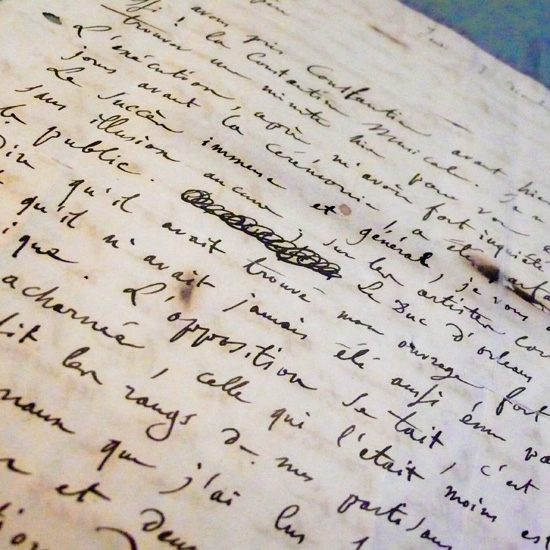 avons pris Constantine avant hier
la Constantine Musicale. Je n'ai
trouvé une minute hier pour vous
L'exécution, après m'avoir fort inquiété
jours avant la Cérémonie, a
Le Succès immense et général, je vous
sans illusion aucune, sur les artistes com
le public. Le Duc d'Orléans
dire qu'il avait trouvé mon ouvrage fort
qu'il n'avait jamais été aussi ému pa
ique. L'opposition se tait, c'est
acharnée, celle qui l'était moins est
les rangs de mes partisans
naux que j'ai lus
et deux